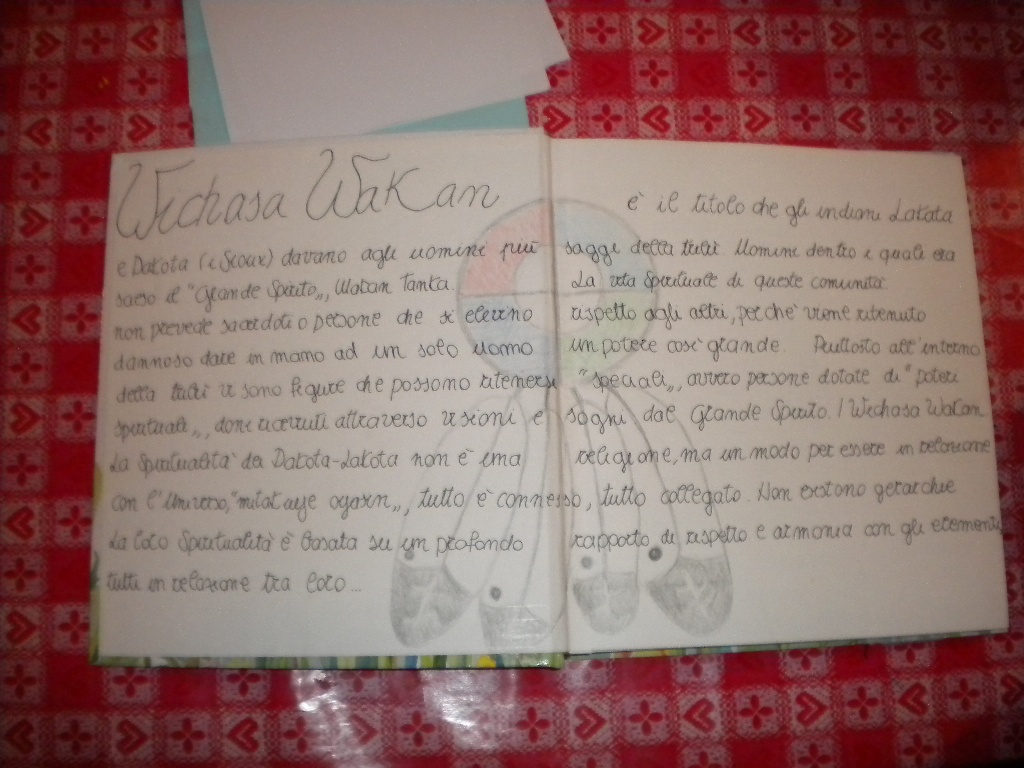 Wichasa Wakan è il titolo che gli indiani Lakota
e Dakota (i Sioux) davano agli uomini più saggi della tribù. Uomini dentro i quali era
sceso il "Grande Spirito,,, Wakan Tanka. La vita spirituale di queste comunità
non prevede sacerdoti o persone che si elevino rispetto agli altri, perchè viene ritenuto
dannoso dare in mano ad un solo uomo un potere così grande. Piuttosto all'interno
della tribù vi sono figure che possono ritenersi "speciali,,, ovvero persone dotate di "poteri
spirituali,,, doni ricevuti attraverso visioni e sogni dal Grande Spirito. I Wichasa Wakan
La Spiritualità dei Dakota-Lakota non è una religione, ma un modo per essere in relazione
con l'Universo, "mitakuye oyasin,,, tutto è connesso, tutto collegato. Non esistono gerarchie
La loro Spiritualità è basata su un profondo rapporto di rispetto e armonia con gli elementi
tutti in relazione tra loro...